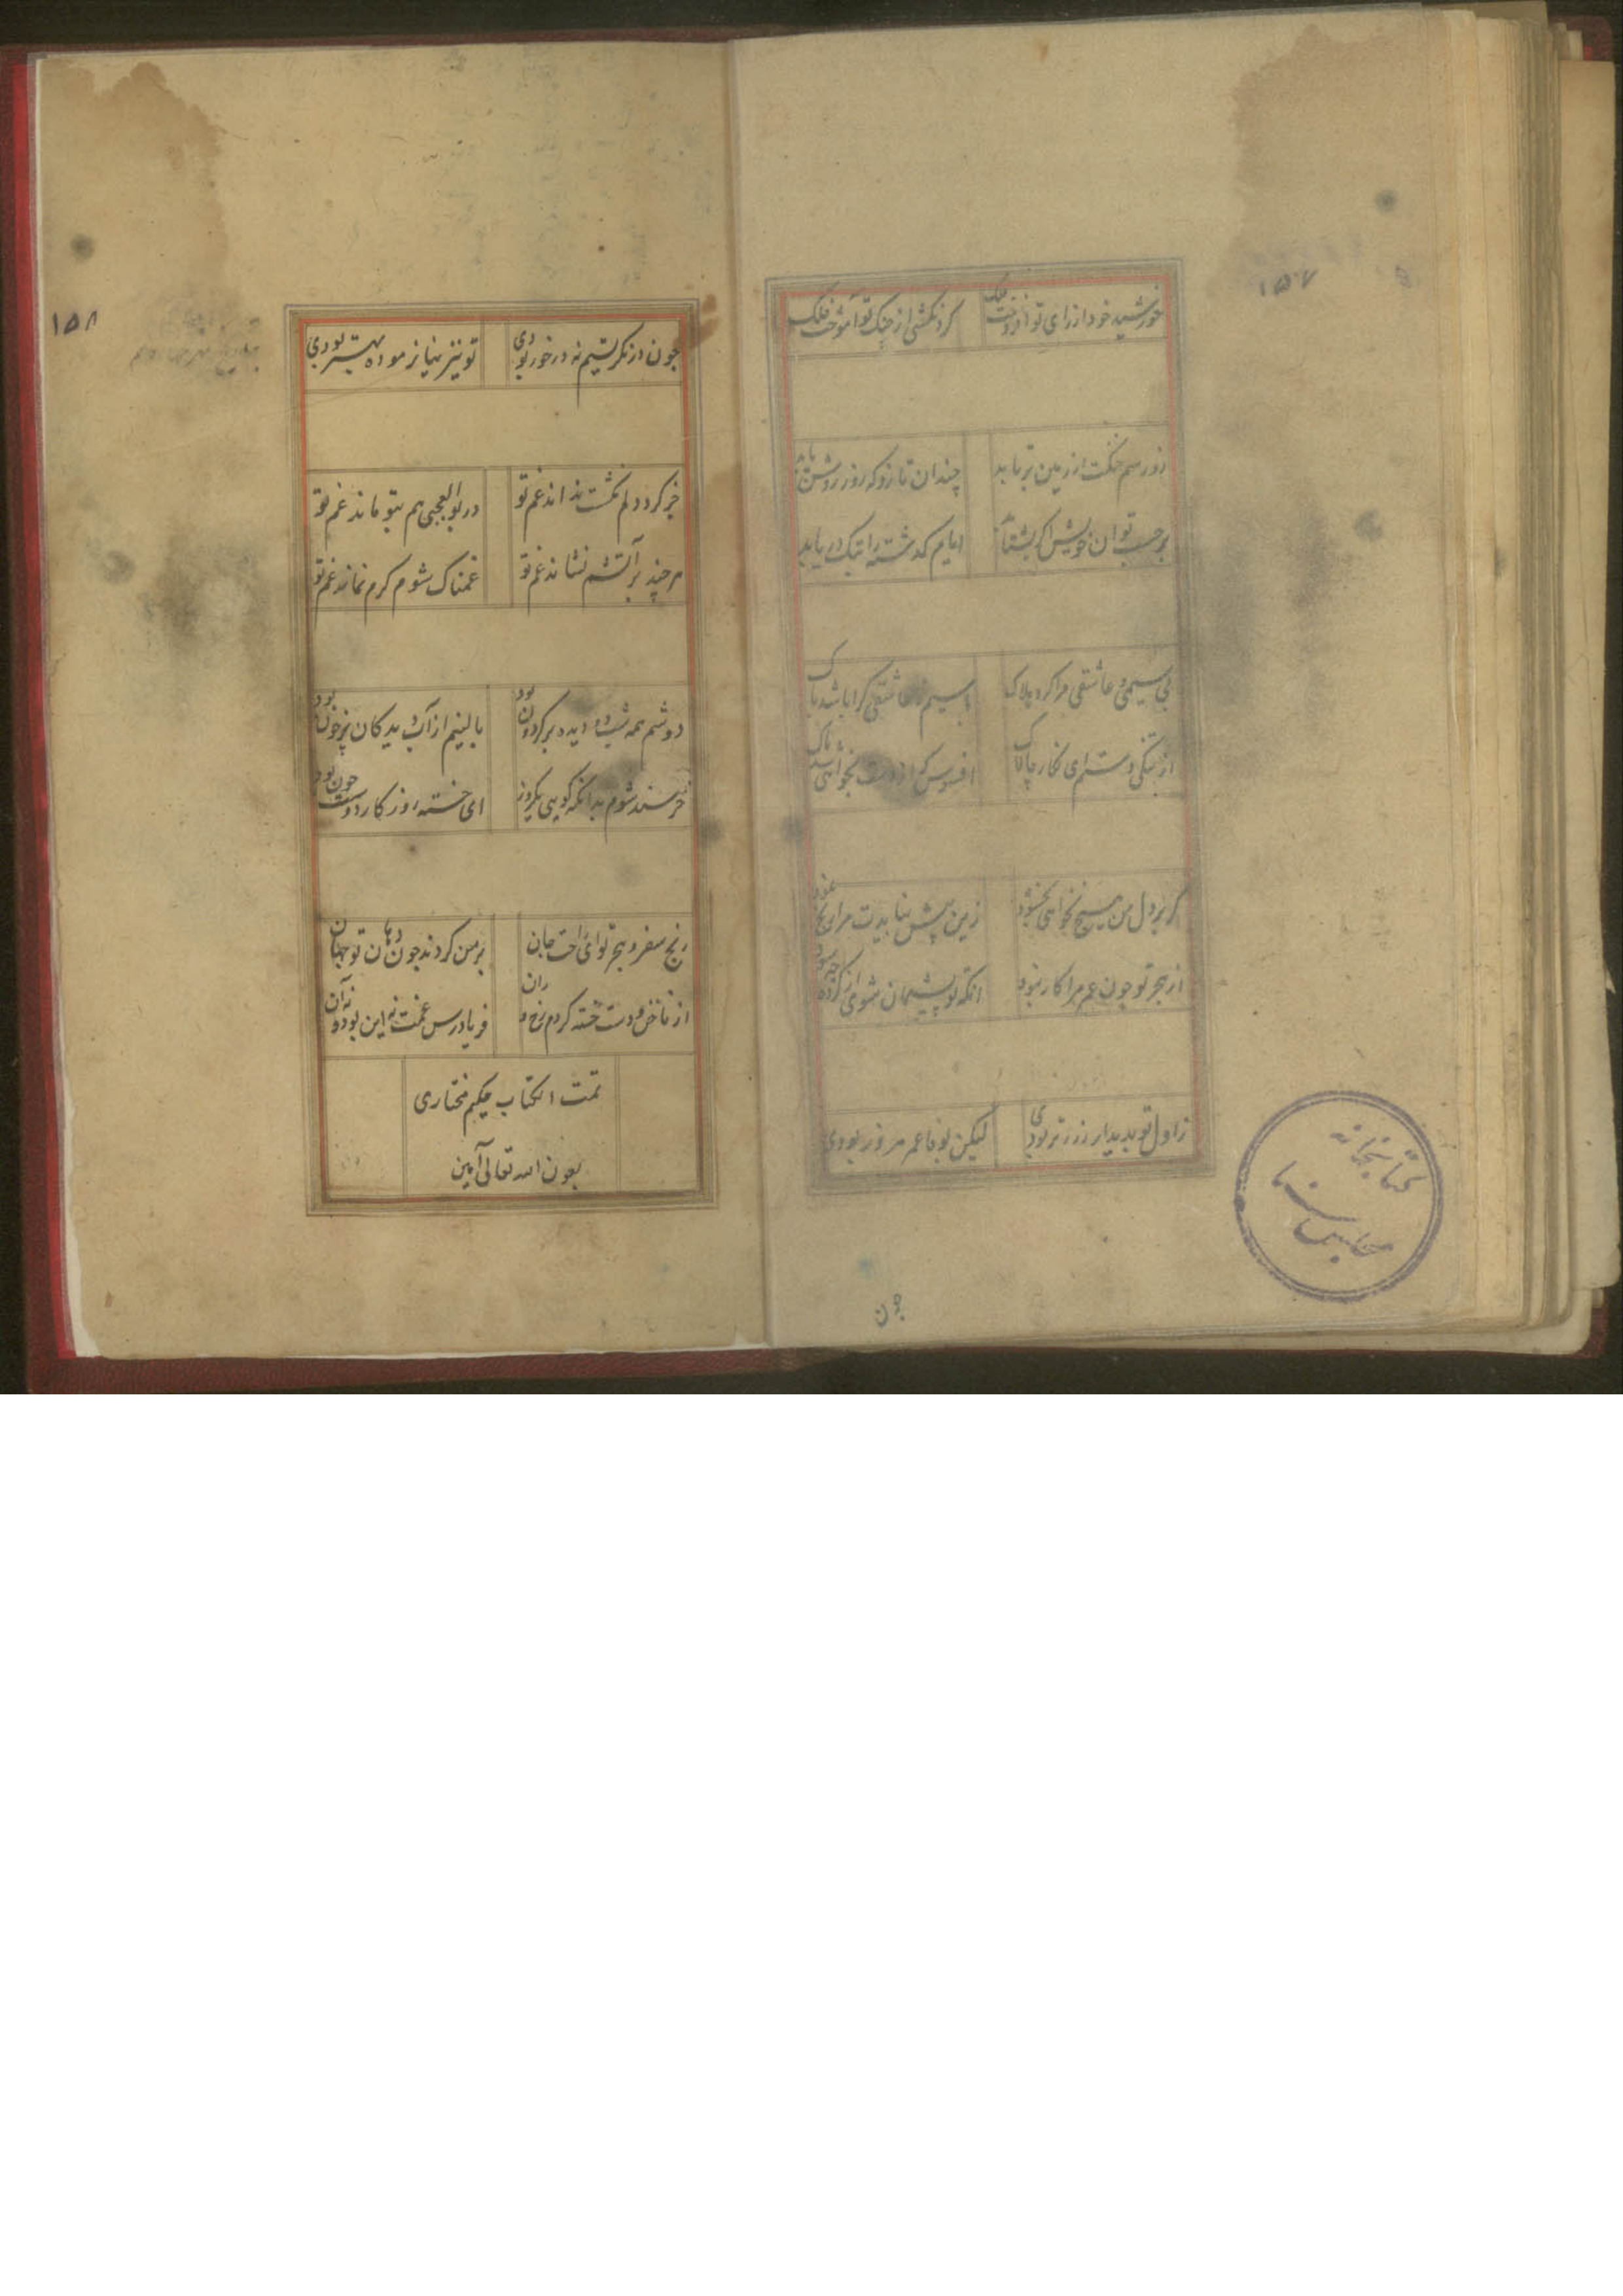 ۱۵۷
خورشید خود از رای تو افروخت فلک
گردنکشی از جنک تو آموخت فلک
زور سم خنکت از زمین تر یابد
چندان تا زو که روز روشن
بر حسب توان خویش اگر بشتابد
ایام گذشته را بتک دریابد
بی سیمی و عاشقی مرا کرد هلاک
بی سیم ز عاشقی کرا باشد باک
از تنگی دستم ای نگار چالاک
افسوس که از دست نخواهی شد پاک
گر بر دل من هیچ نخواهی بخشود
زین پیش نبایدت مرا رنج نمود
از هجر تو چون عمر مرا کار نبود
آنگه تو پشیمان شوی از کرده چه سود
ز اول تو بدیدار ز زر تر بودی
لیکن بوفا عمر مزور بودی
چون
کتابخانه
مجلس
۱۵۸
چون در نکرستیم نه در خور بودی
تو نیز نیازموده بهتر بودی
خیر کرد دلم نکشت نداند غم تو
در بوالعجبی هم بتو ماند غم تو
هر چند بر آتشم نشاند غم تو
غمناک شوم کرم نماند غم تو
دوشم همه شب دو دیده بر کردون بود
بالینم از آب دیدکان پر خون بود
خرسند شوم بدانکه کویی یکروز
ای خسته روزکار دوشت چون بود
رنج سفر و هجر تو ای راحت جان
بر من کردند چون دهان تو جهان
از ناخن و دست خسته کردم رخ و ران
فریادرس غمت نه این بود و نه آن
تمت الکتاب حکیم مختاری
بعون الله تعالی آمین